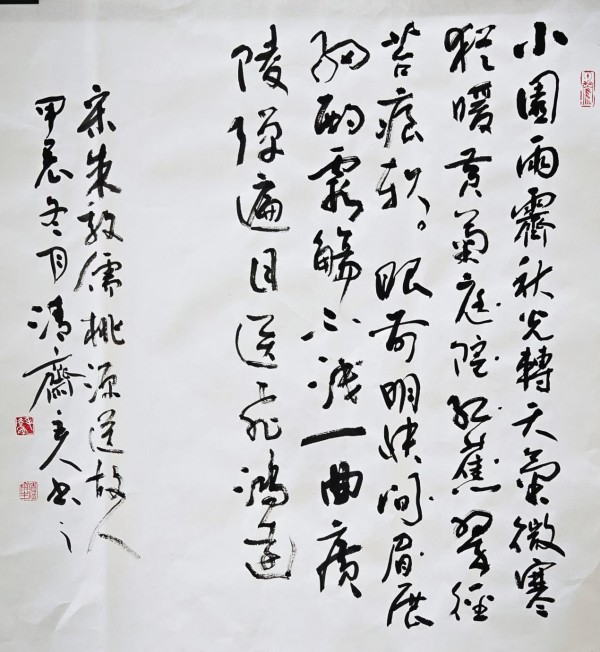 小園雨霽秋光轉天氣微寒
猶暖黄菊庭院紅蕉翠徑
苔痕軟。眼前明快间眉展
細酌霞觴不淺一曲廣
陵弹遍目送飛鴻遠
宋朱敦儒桃源送故人
甲辰冬月清齋主人书